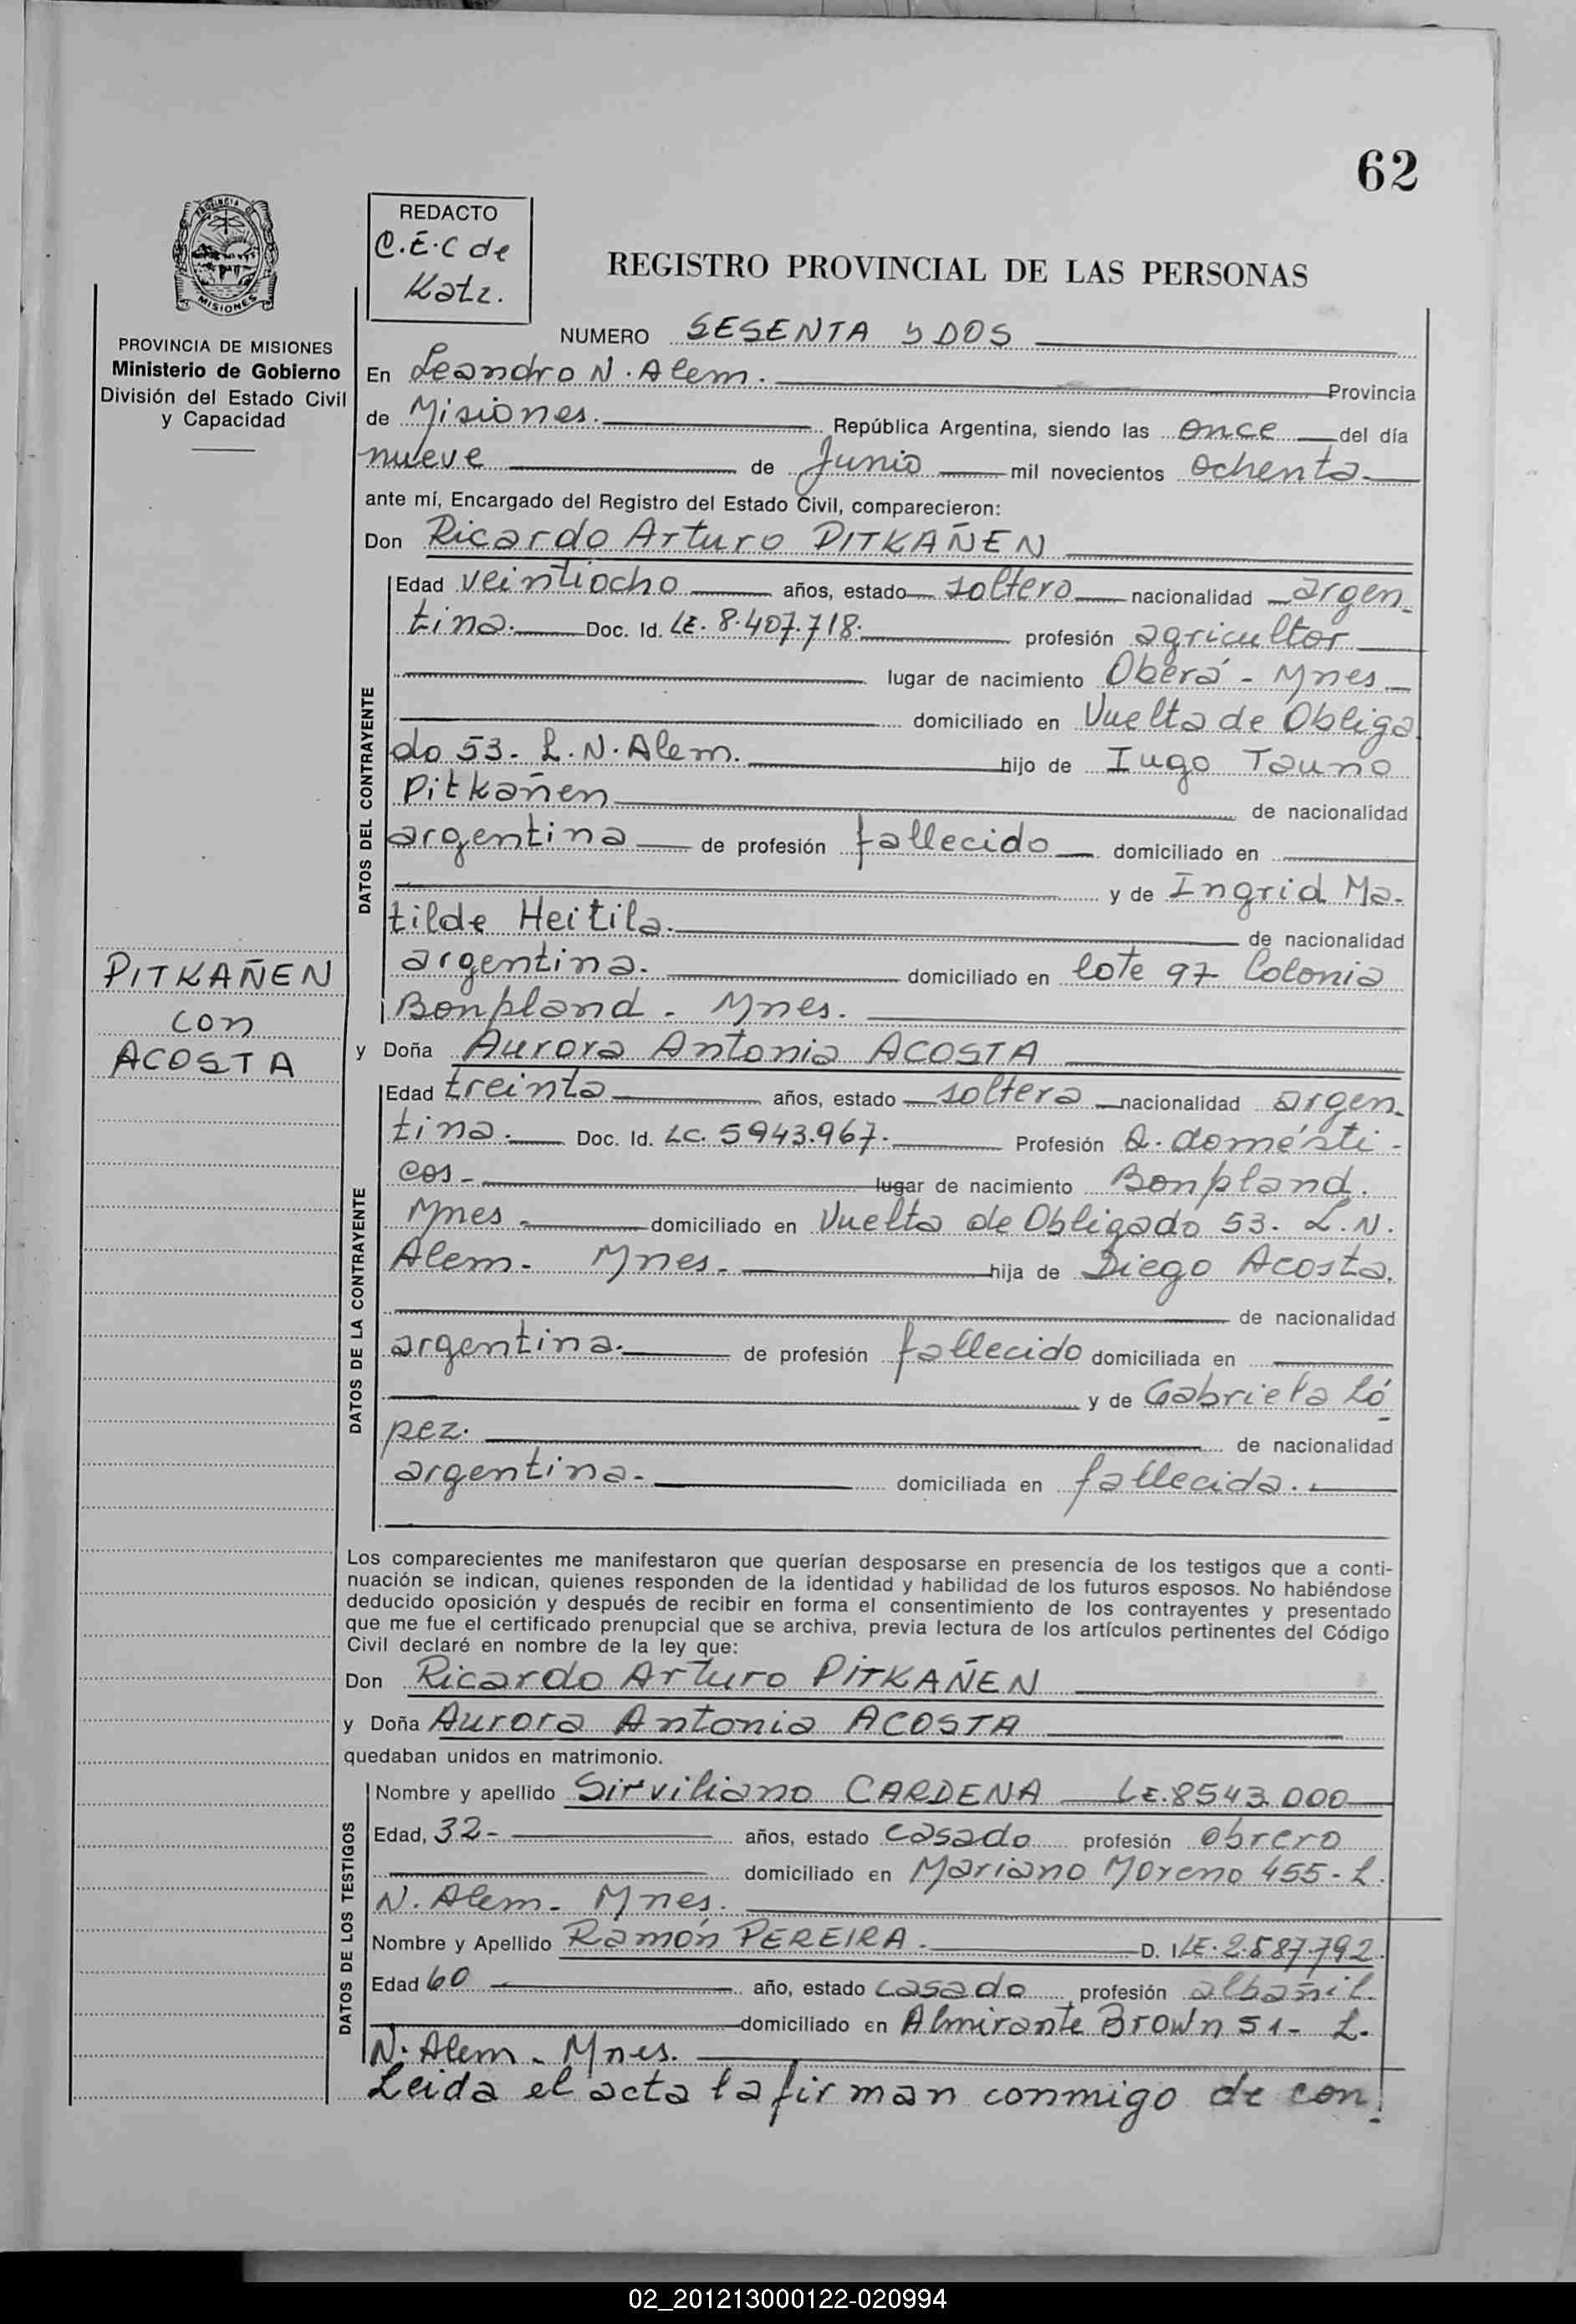 62
PROVINCIA DE
MISIONES
REDACTO
C.E.C de
Katz.
REGISTRO PROVINCIAL DE LAS PERSONAS
PROVINCIA DE MISIONES
Ministerio de Gobierno
División del Estado Civil
y Capacidad
NUMERO SESENTA y DOS
En Leandro N. Alem. Provincia
de Misiones. República Argentina, siendo las once del día
nueve de Junio mil novecientos ochenta
ante mí, Encargado del Registro del Estado Civil, comparecieron:
Don Ricardo Arturo PITKAÑEN
DATOS DEL CONTRAYENTE
Edad veintiocho años, estado soltero nacionalidad argen-
tina. Doc. Id. LE. 8.407.718. profesión agricultor
lugar de nacimiento Oberá - Mnes
domiciliado en Vuelta de Obliga
do 53. L. N. Alem. hijo de Iugo Tauno
Pitkañen de nacionalidad
argentina de profesión fallecido domiciliado en
y de Ingrid Ma-
tilde Heitila. de nacionalidad
argentina. domiciliado en lote 97 Colonia
Bonpland - Mnes.
PITKAÑEN
con
ACOSTA
y Doña Aurora Antonia ACOSTA
DATOS DE LA CONTRAYENTE
Edad treinta años, estado soltera nacionalidad argen-
tina. Doc. Id. LC. 5943.967. Profesión Q. domésti-
cos - lugar de nacimiento Bonpland.
Mnes - domiciliado en Vuelta de Obligado 53. L. N.
Alem - Mnes - hija de Diego Acosta.
de nacionalidad
argentina. de profesión fallecido domiciliada en
y de Gabriela Ló-
pez. de nacionalidad
argentina - domiciliada en fallecida.
Los comparecientes me manifestaron que querían desposarse en presencia de los testigos que a conti-
nuación se indican, quienes responden de la identidad y habilidad de los futuros esposos. No habiéndose
deducido oposición y después de recibir en forma el consentimiento de los contrayentes y presentado
que me fue el certificado prenupcial que se archiva, previa lectura de los artículos pertinentes del Código
Civil declaré en nombre de la ley que:
Don Ricardo Arturo PITKAÑEN
y Doña Aurora Antonia ACOSTA
quedaban unidos en matrimonio.
DATOS DE LOS TESTIGOS
Nombre y apellido Sirviliano CARDENA LE. 8543.000
Edad, 32 - años, estado casado profesión obrero
domiciliado en Mariano Moreno 455 - L.
N. Alem - Mnes.
Nombre y Apellido Ramón PEREIRA. D. I LE. 2.587.792.
Edad 60 año, estado casado profesión albañil.
domiciliado en Almirante Brown 51 - L.
N. Alem - Mnes.
Leida el acta la firman conmigo de con-
02_201213000122-020994